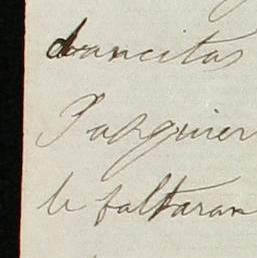 dancitas
Pasquier
le faltaran